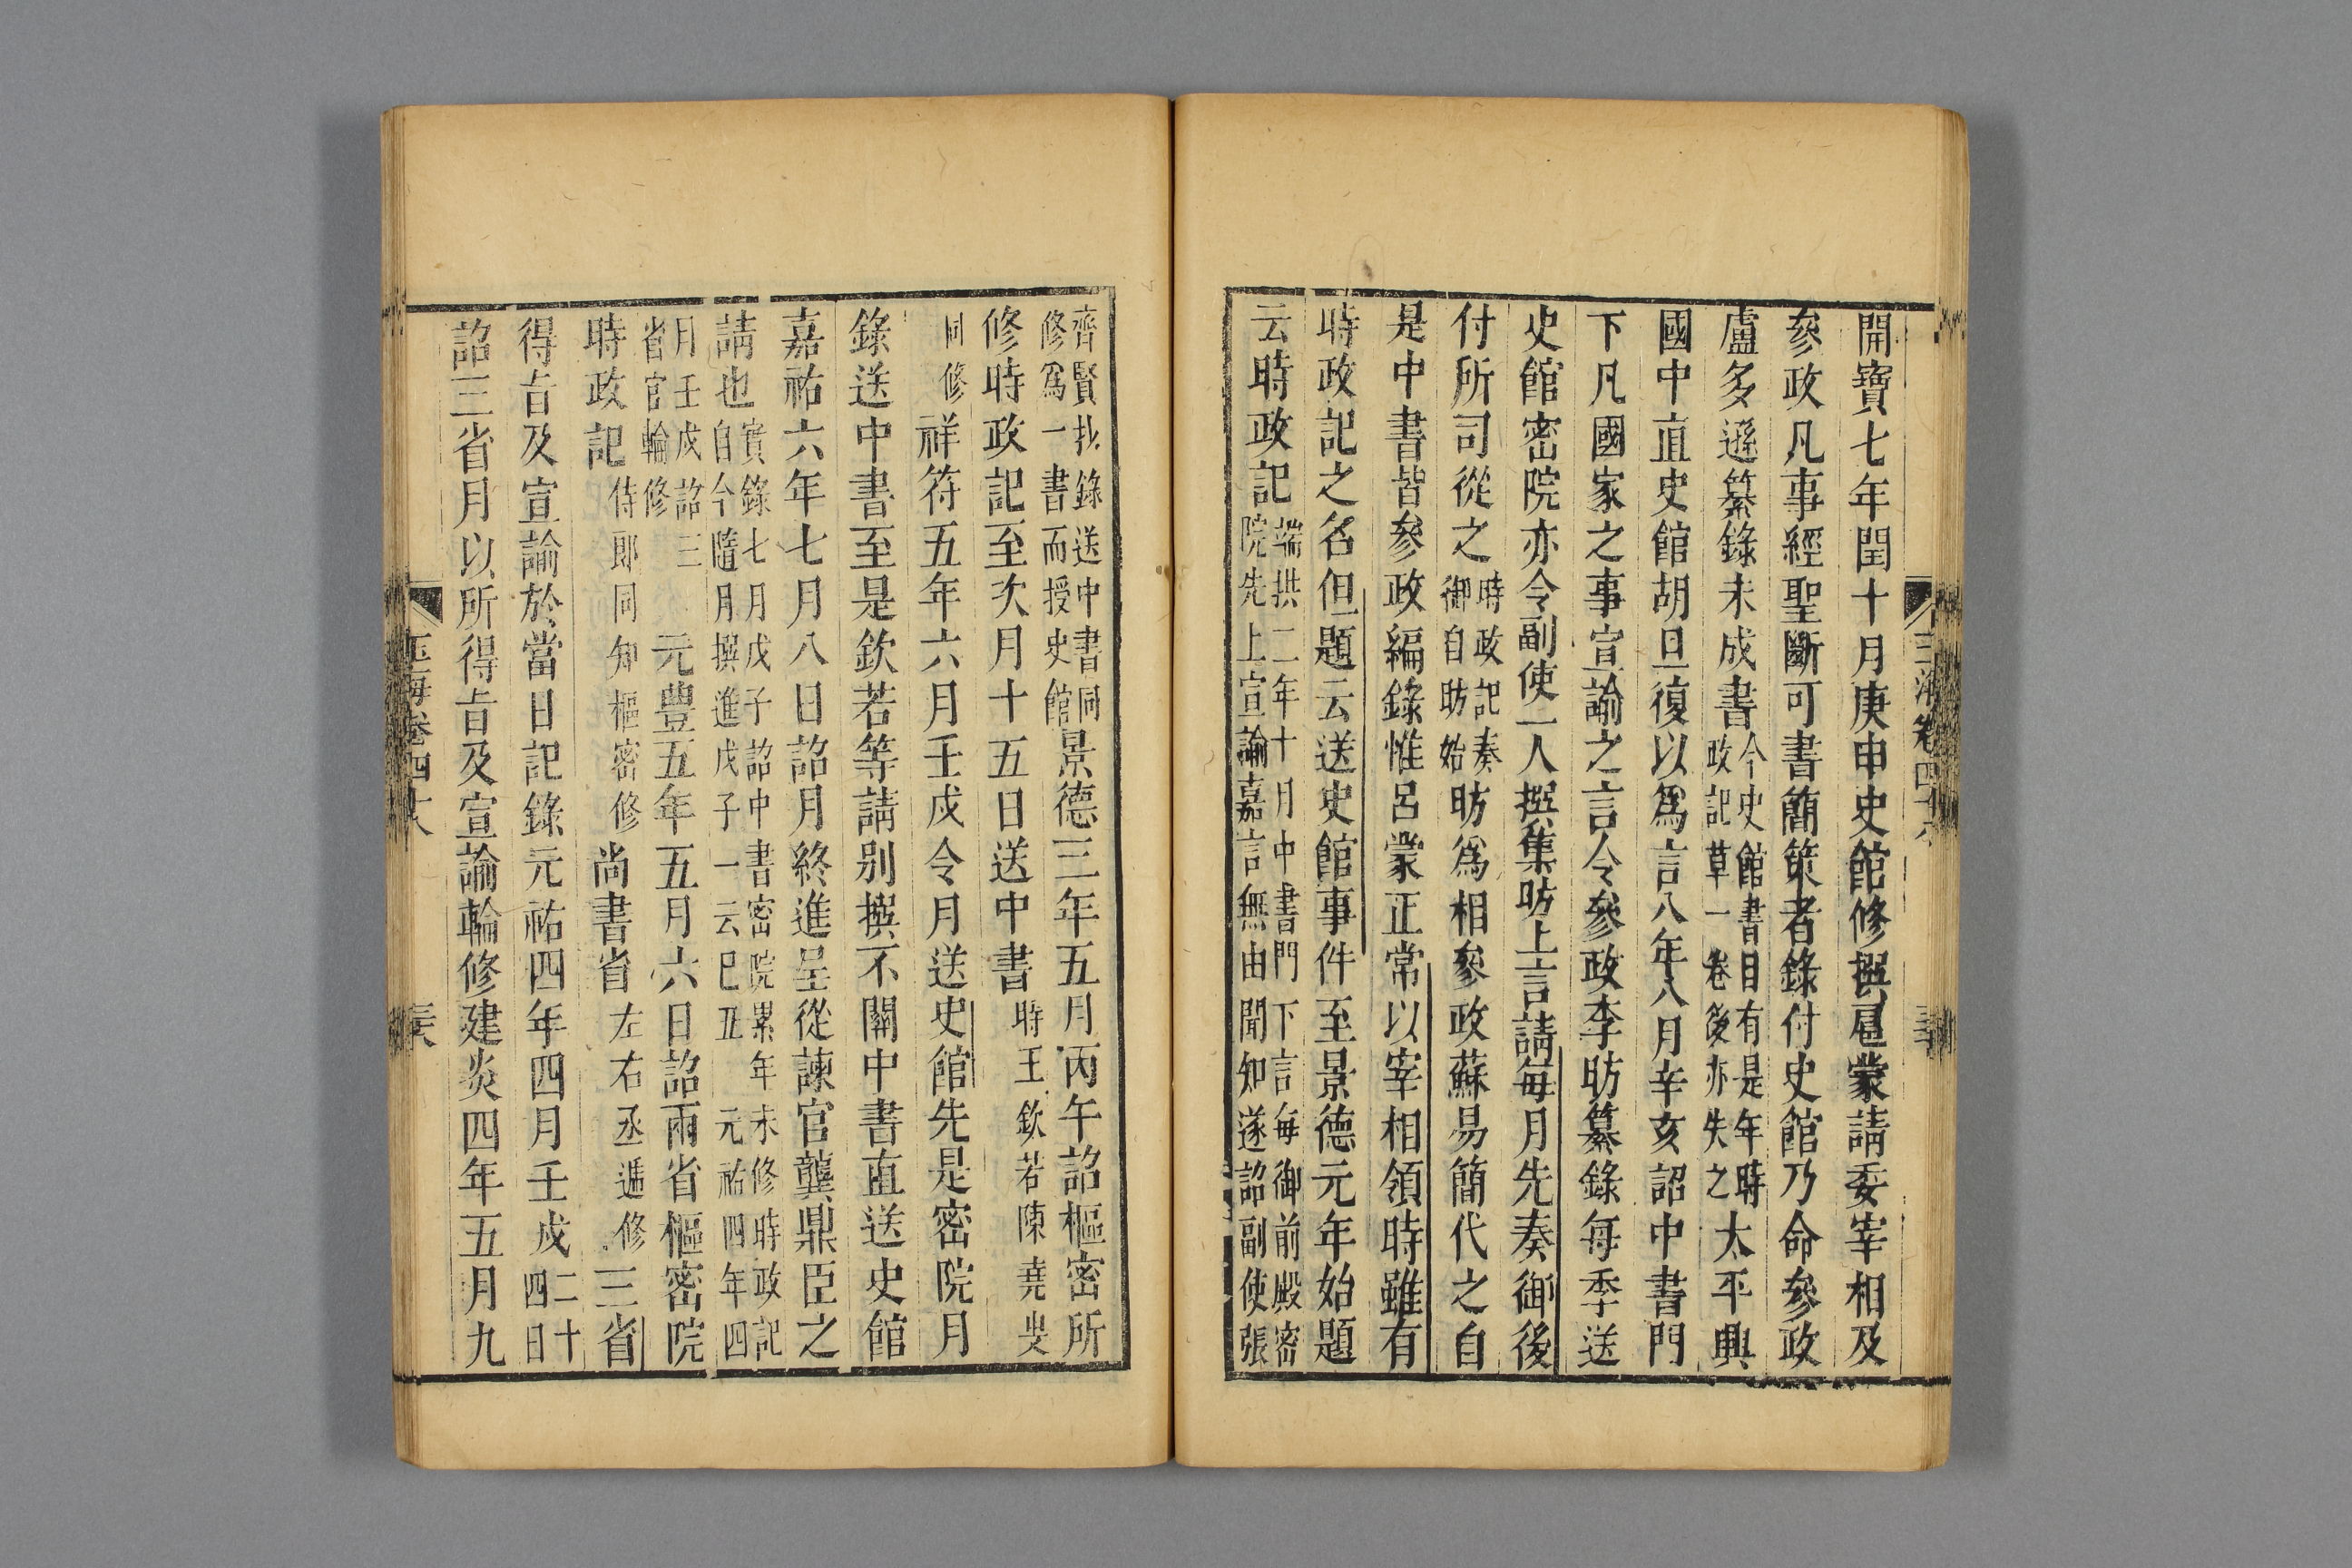 開寶七年閏十月庚申史館修撰扈蒙請委宰相及
參政凡事經聖斷可書簡策者錄付史館乃命參政
盧多遜纂錄未成書今史館書目有是年時政記草一卷後亦失之太平興
國中直史館胡旦復以爲言八年八月辛亥詔中書門
下凡國家之事宣諭之言令參政李昉纂錄每季送
史館密院亦令副使一人撰集昉上言請每月先奏御後
付所司從之時政記奏御自昉始昉爲相參政蘇易簡代之自
是中書皆參政編錄惟呂蒙正常以宰相領時雖有
時政記之名但題云送史館事件至景德元年始題
云時政記端拱二年十月中書門下言每御前殿密院先上宣諭嘉言無由聞知遂詔副使張
齊賢抄錄送中書同修爲一書而授史館景德三年五月丙午詔樞密所
修時政記至次月十五日送中書時王欽若陳堯叟
同修祥符五年六月壬戌令月送史館先是密院月
錄送中書至是欽若等請别撰不關中書直送史館
嘉祐六年七月八日詔月終進呈從諫官龔鼎臣之
請也實錄七月戊子詔中書密院累年未修時政記自今隨月撰進戊子一云己丑元祐四年四
月壬戌詔三省官輪修元豊五年五月六日詔兩省樞密院
時政記侍郎同知樞密修尚書省左右丞遞修三省
得旨及宣諭於當日記錄元祐四年四月壬戌二十四日
詔三省月以所得旨及宣諭輪修建炎四年五月九
玉海卷四十八